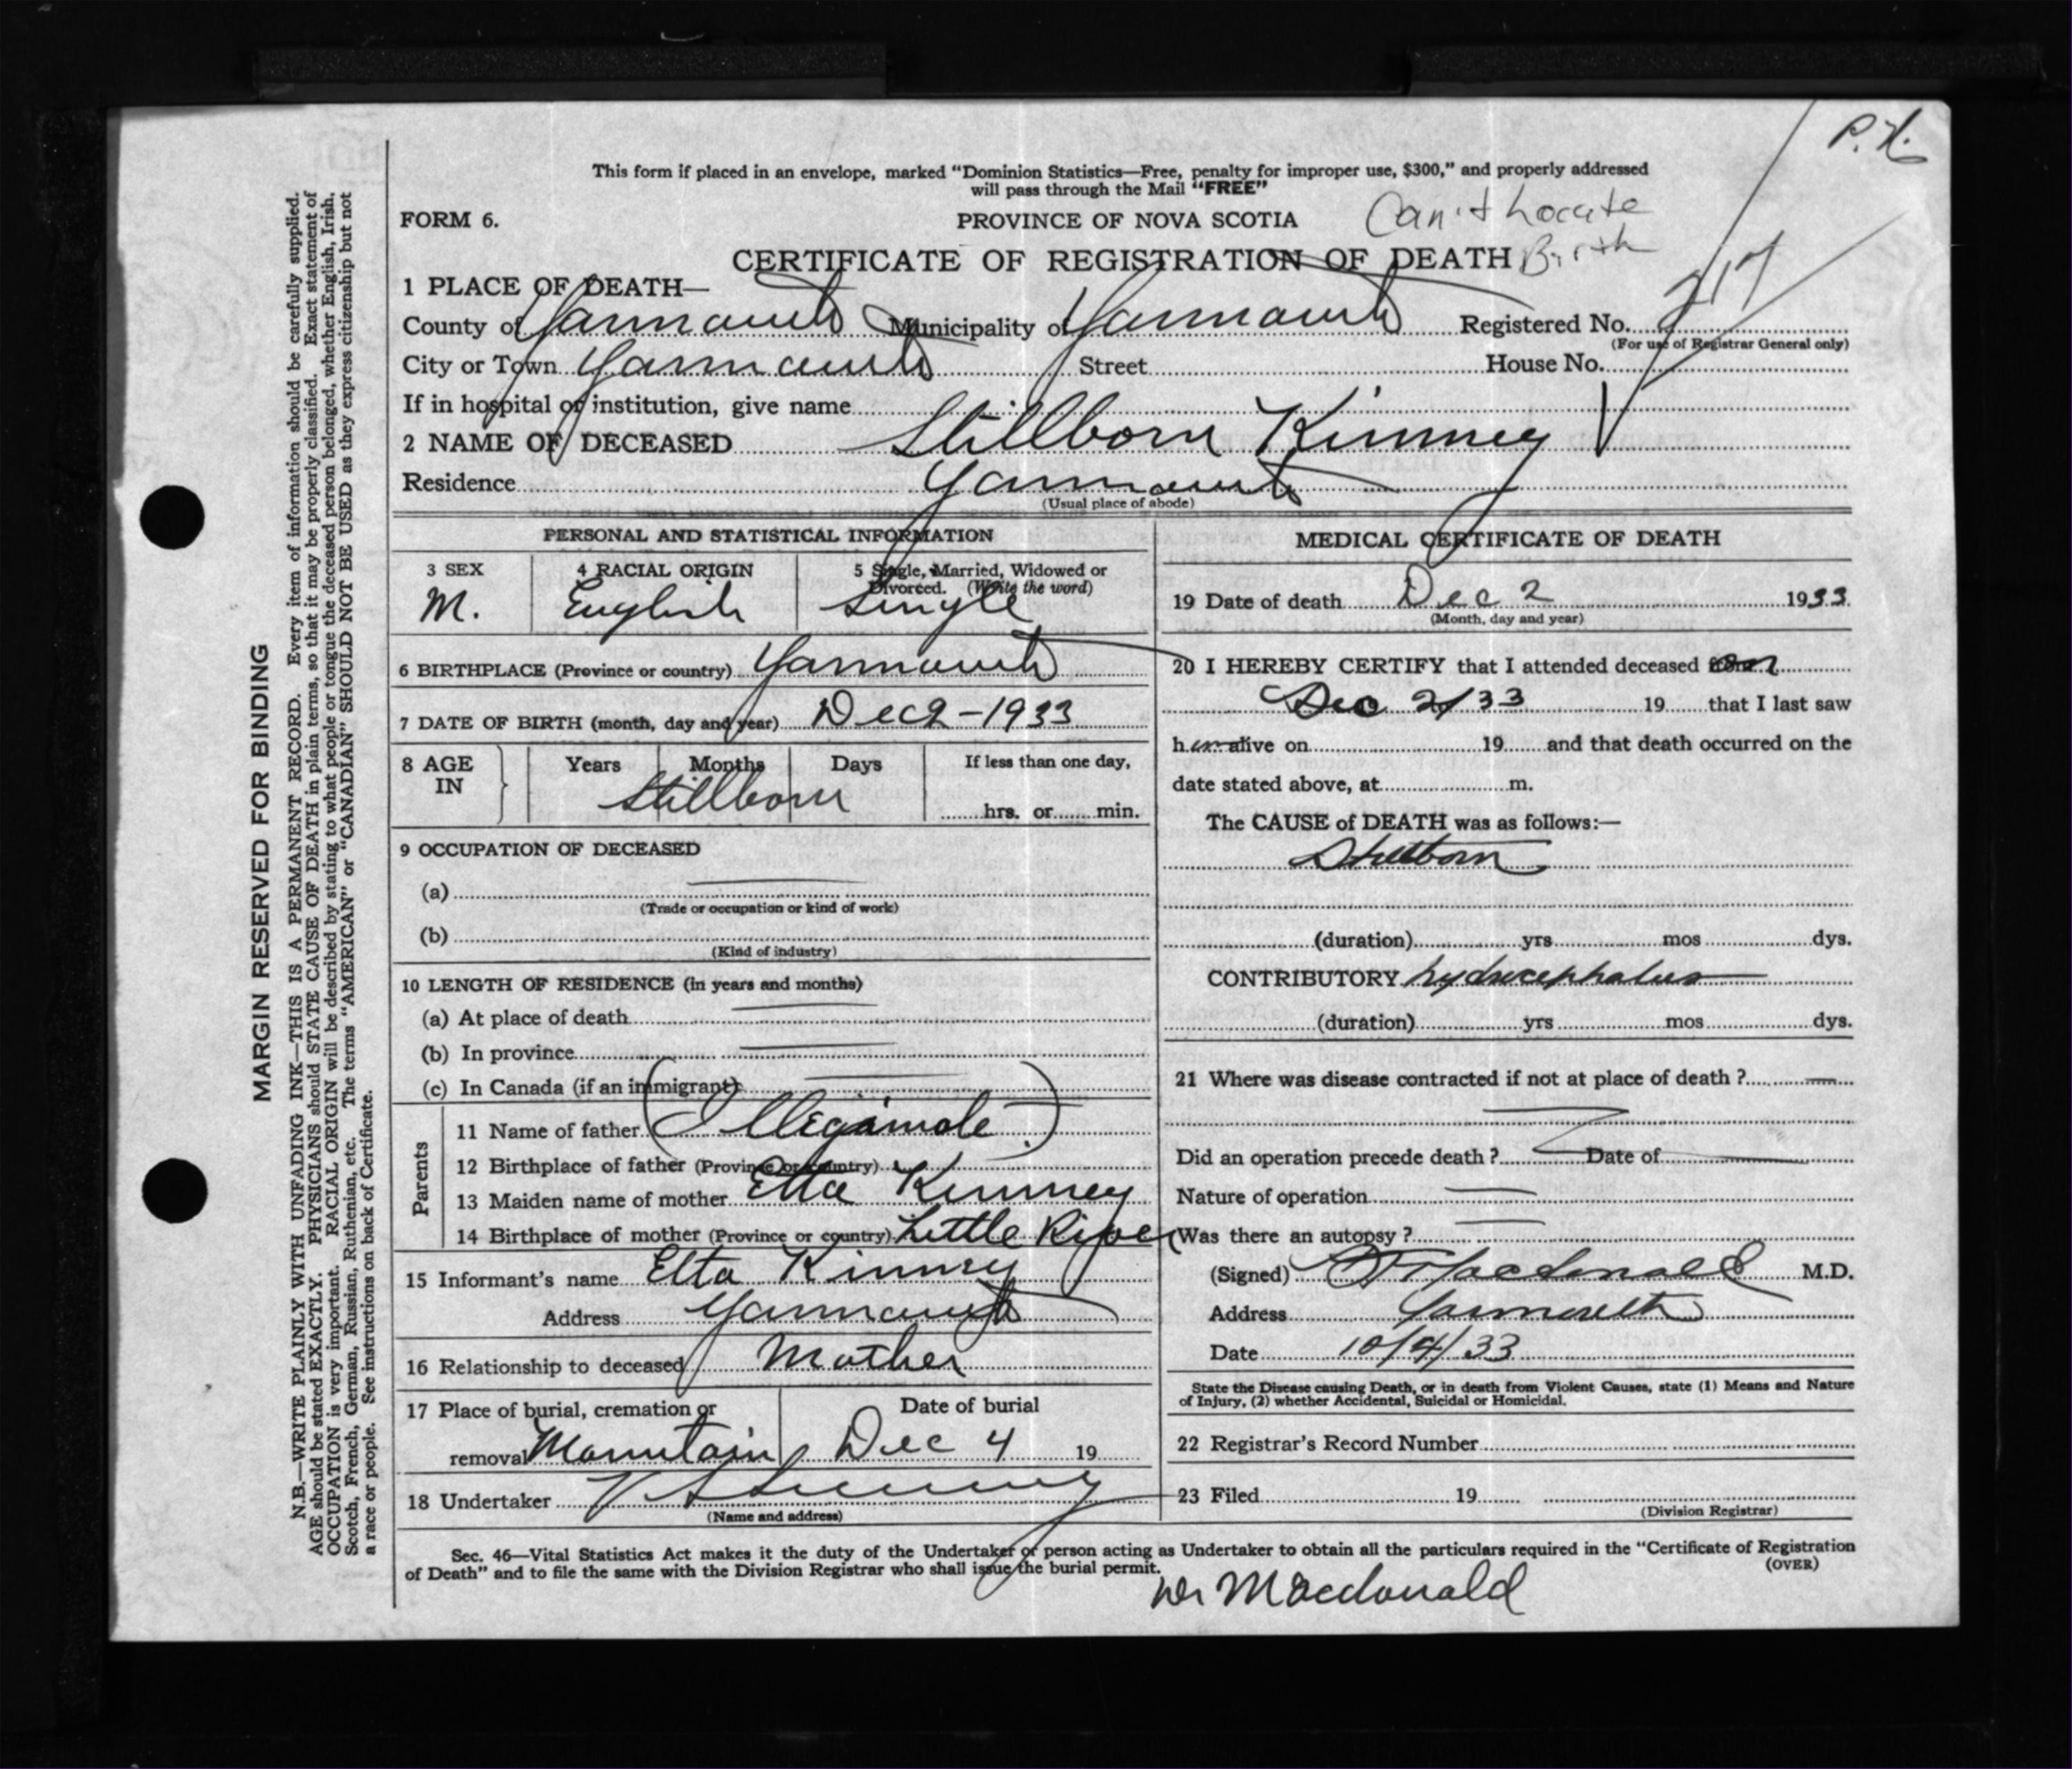 P. H.
This form if placed in an envelope, marked "Dominion Statistics—Free, penalty for improper use, $300," and properly addressed
will pass through the Mail "FREE"
FORM 6.
PROVINCE OF NOVA SCOTIA
Can't Locate
Birth
CERTIFICATE OF REGISTRATION OF DEATH
1 PLACE OF DEATH—
County of Yarmouth Municipality of Yarmouth Registered No. 217
(For use of Registrar General only)
City or Town Yarmouth Street House No.
If in hospital or institution, give name
2 NAME OF DECEASED Stillborn Kinney
Residence Yarmouth
(Usual place of abode)
PERSONAL AND STATISTICAL INFORMATION
3 SEX 4 RACIAL ORIGIN 5 Single, Married, Widowed or
Divorced. (Write the word)
M. English Single
6 BIRTHPLACE (Province or country) Yarmouth
7 DATE OF BIRTH (month, day and year) Dec 2 - 1933
8 AGE IN Years Months Days If less than one day,
Stillborn
hrs. or min.
9 OCCUPATION OF DECEASED
(a)
(Trade or occupation or kind of work)
(b)
(Kind of industry)
10 LENGTH OF RESIDENCE (in years and months)
(a) At place of death
(b) In province
(c) In Canada (if an immigrant)
Parents
11 Name of father (Illegamate)
12 Birthplace of father (Province or country)
13 Maiden name of mother Etta Kinney
14 Birthplace of mother (Province or country) Little River
15 Informant's name Etta Kinney
Address Yarmouth
16 Relationship to deceased Mother
17 Place of burial, cremation or Date of burial
removal Mountain Dec 4 19
18 Undertaker V S Sweeney
(Name and address)
MEDICAL CERTIFICATE OF DEATH
19 Date of death Dec 2 1933
(Month, day and year)
20 I HEREBY CERTIFY that I attended deceased on
Dec 2/33 19 that I last saw
h alive on 19 and that death occurred on the
date stated above, at m.
The CAUSE of DEATH was as follows:—
Stillborn
(duration) yrs mos dys.
CONTRIBUTORY hydrocephalus
(duration) yrs mos dys.
21 Where was disease contracted if not at place of death ?
Did an operation precede death ? Date of
Nature of operation
Was there an autopsy ?
(Signed) Macdonald M.D.
Address Yarmouth
Date 10/4/33
State the Disease causing Death, or in death from Violent Causes, state (1) Means and Nature
of Injury, (2) whether Accidental, Suicidal or Homicidal.
22 Registrar's Record Number
23 Filed 19
(Division Registrar)
Sec. 46—Vital Statistics Act makes it the duty of the Undertaker or person acting as Undertaker to obtain all the particulars required in the "Certificate of Registration
of Death" and to file the same with the Division Registrar who shall issue the burial permit.
(OVER)
Dr Macdonald
MARGIN RESERVED FOR BINDING
N.B.—WRITE PLAINLY WITH UNFADING INK—THIS IS A PERMANENT RECORD. Every item of information should be carefully supplied.
AGE should be stated EXACTLY. PHYSICIANS should STATE CAUSE OF DEATH in plain terms, so that it may be properly classified. Exact statement of
OCCUPATION is very important. RACIAL ORIGIN will be described by stating to what people or tongue the deceased person belonged, whether English, Irish,
Scotch, French, German, Russian, Ruthenian, etc. The terms "AMERICAN" or "CANADIAN" SHOULD NOT BE USED as they express citizenship but not
a race or people. See instructions on back of Certificate.